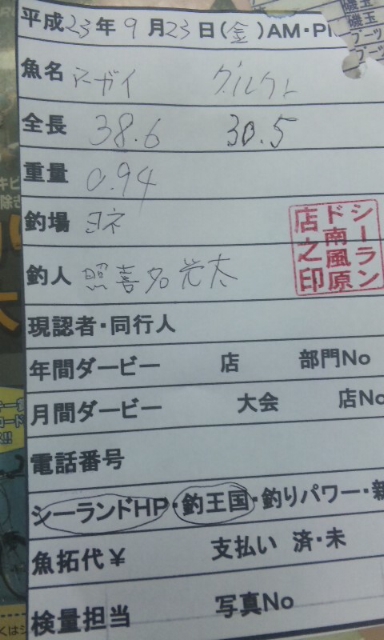 平成23年9月23日(金)AM・P
魚名 アーガイ グルクン
全長 38.6 30.5
重量 0.94
釣場 ヨネ
シーラン
ド南風原
店之印
釣人 照喜名光太
現認者・同行人
年間ダービー 店 部門No
月間ダービー 大会 店No
電話番号
シーランドHP・釣王国・釣りパワー・新
魚拓代¥ 支払い 済・未
検量担当 写真No